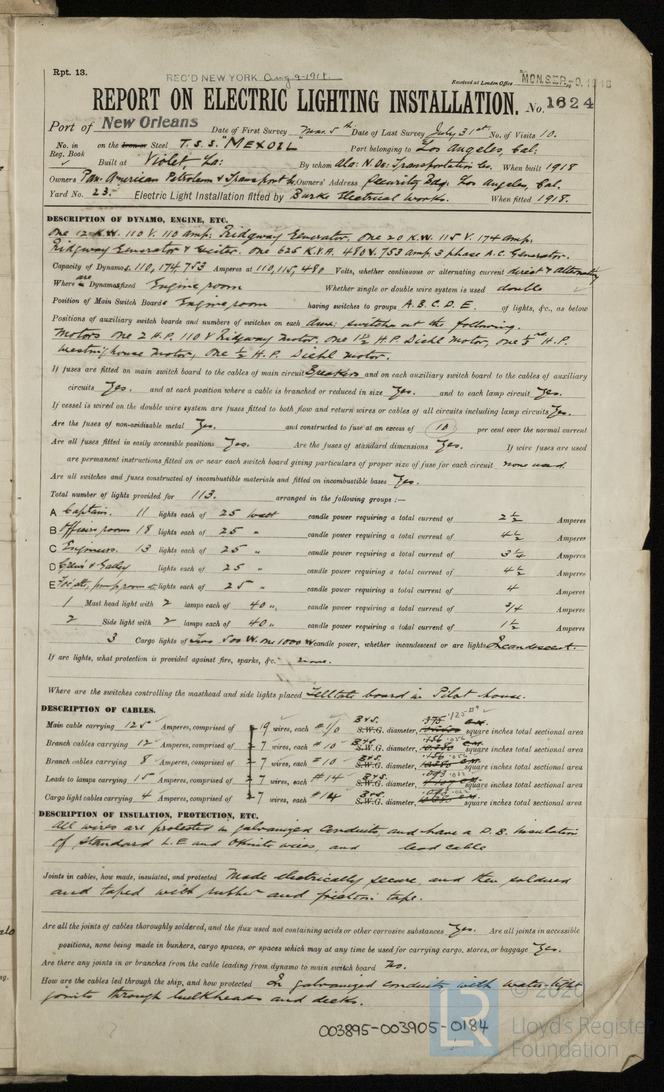 Rpt. 13.
REC'D NEW YORK Aug 9-1918.
Received at London Office MON. SEP. -9. 1918
REPORT ON ELECTRIC LIGHTING INSTALLATION. No. 1624
Port of New Orleans Date of First Survey Mar. 5th Date of Last Survey July 31st No. of Visits 10.
No. in Reg. Book on the Iron or Steel T.S.S. "MEXOIL" Port belonging to Los Angeles, Cal.
Built at Violet, La: By whom Ala: N. Or: Transportation Co. When built 1918
Owners Pan-American Petroleum & Transport Co, Owners' Address Security Bdg. Los Angeles, Cal.
Yard No. 23. Electric Light Installation fitted by Burke Electrical Works. When fitted 1918.
DESCRIPTION OF DYNAMO, ENGINE, ETC.
One 12 K.W. 110 V. 110 amp: Ridgway Generator. One 20 K.W. 115 V. 174 amp:
Ridgway Generator & Exciter. One 625 K.V.A. 480 V. 753 amp 3 phase A.C. Generator.
Capacity of Dynamos 110, 174, 753 Amperes at 110, 115, 480 Volts, whether continuous or alternating current direct & alternating
Where are Dynamos fixed Engine room Whether single or double wire system is used double
Position of Main Switch Board Engine room having switches to groups A. B. C. D. E. of lights, &c., as below
Positions of auxiliary switch boards and numbers of switches on each Aux. switches at the following.
Motors one 2 H.P. 110 V Ridgway motor, One 1½ H.P. Diehl motor, one
Westinghouse motor, One ½ H.P. Diehl motor.
If fuses are fitted on main switch board to the cables of main circuit Breakers and on each auxiliary switch board to the cables of auxiliary
circuits Yes. and at each position where a cable is branched or reduced in size Yes. and to each lamp circuit Yes.
If vessel is wired on the double wire system are fuses fitted to both flow and return wires or cables of all circuits including lamp circuits Yes.
Are the fuses of non-oxidizable metal Yes. and constructed to fuse at an excess of 10 per cent over the normal current
Are all fuses fitted in easily accessible positions Yes. Are the fuses of standard dimensions Yes. If wire fuses are used
are permanent instructions fitted on or near each switch board giving particulars of proper size of fuse for each circuit none used.
Are all switches and fuses constructed of incombustible materials and fitted on incombustible bases Yes.
Total number of lights provided for 113. arranged in the following groups :—
A Captain. 11 lights each of 25 Watt candle power requiring a total current of 2½ Amperes
B Officers room 18 lights each of 25 " candle power requiring a total current of 4½ Amperes
C Engineers. 13 lights each of 25 " candle power requiring a total current of 3¼ Amperes
D & Galley lights each of 25 " candle power requiring a total current of 4½ Amperes
E pump room & lights each of 25 " candle power requiring a total current of 4 Amperes
1 Mast head light with 2 lamps each of 40 ", candle power requiring a total current of ¾ Amperes
2 Side light with 2 lamps each of 40 ", candle power requiring a total current of 1½ Amperes
3 Cargo lights of Two 500 W. One 1000 W candle power, whether incandescent or arc lights Incandescent.
If arc lights, what protection is provided against fire, sparks, &c. none.
Where are the switches controlling the masthead and side lights placed Telltale board in Pilot house.
DESCRIPTION OF CABLES.
Main cable carrying 125 Amperes, comprised of 19 wires, each # 1/0 B&S. S.W.G. diameter, square inches total sectional area
Branch cables carrying 12 Amperes, comprised of 7 wires, each # 10 B&S. S.W.G. diameter, square inches total sectional area
Branch cables carrying 8 Amperes, comprised of 7 wires, each # 10 B&S. S.W.G. diameter, square inches total sectional area
Leads to lamps carrying 15 Amperes, comprised of 7 wires, each # 14 B&S. S.W.G. diameter, square inches total sectional area
Cargo light cables carrying 4 Amperes, comprised of 7 wires, each # 14 B&S. S.W.G. diameter, square inches total sectional area
DESCRIPTION OF INSULATION, PROTECTION, ETC.
All wires are protected in galvanized conduits, and have a D.B. insulation
of Standard L.E and Okonite wires, and lead cable
Joints in cables, how made, insulated, and protected Made electrically secure, and then soldered
and taped with rubber and friction tape.
Are all the joints of cables thoroughly soldered, and the flux used not containing acids or other corrosive substances Yes. Are all joints in accessible
positions, none being made in bunkers, cargo spaces, or spaces which may at any time be used for carrying cargo, stores, or baggage Yes.
Are there any joints in or branches from the cable leading from dynamo to main switch board No.
How are the cables led through the ship, and how protected In galvanized conduits with water-tight
joints through bulkheads and decks.
003895-003905-0184
LR © 2020
Lloyd's Register
Foundation